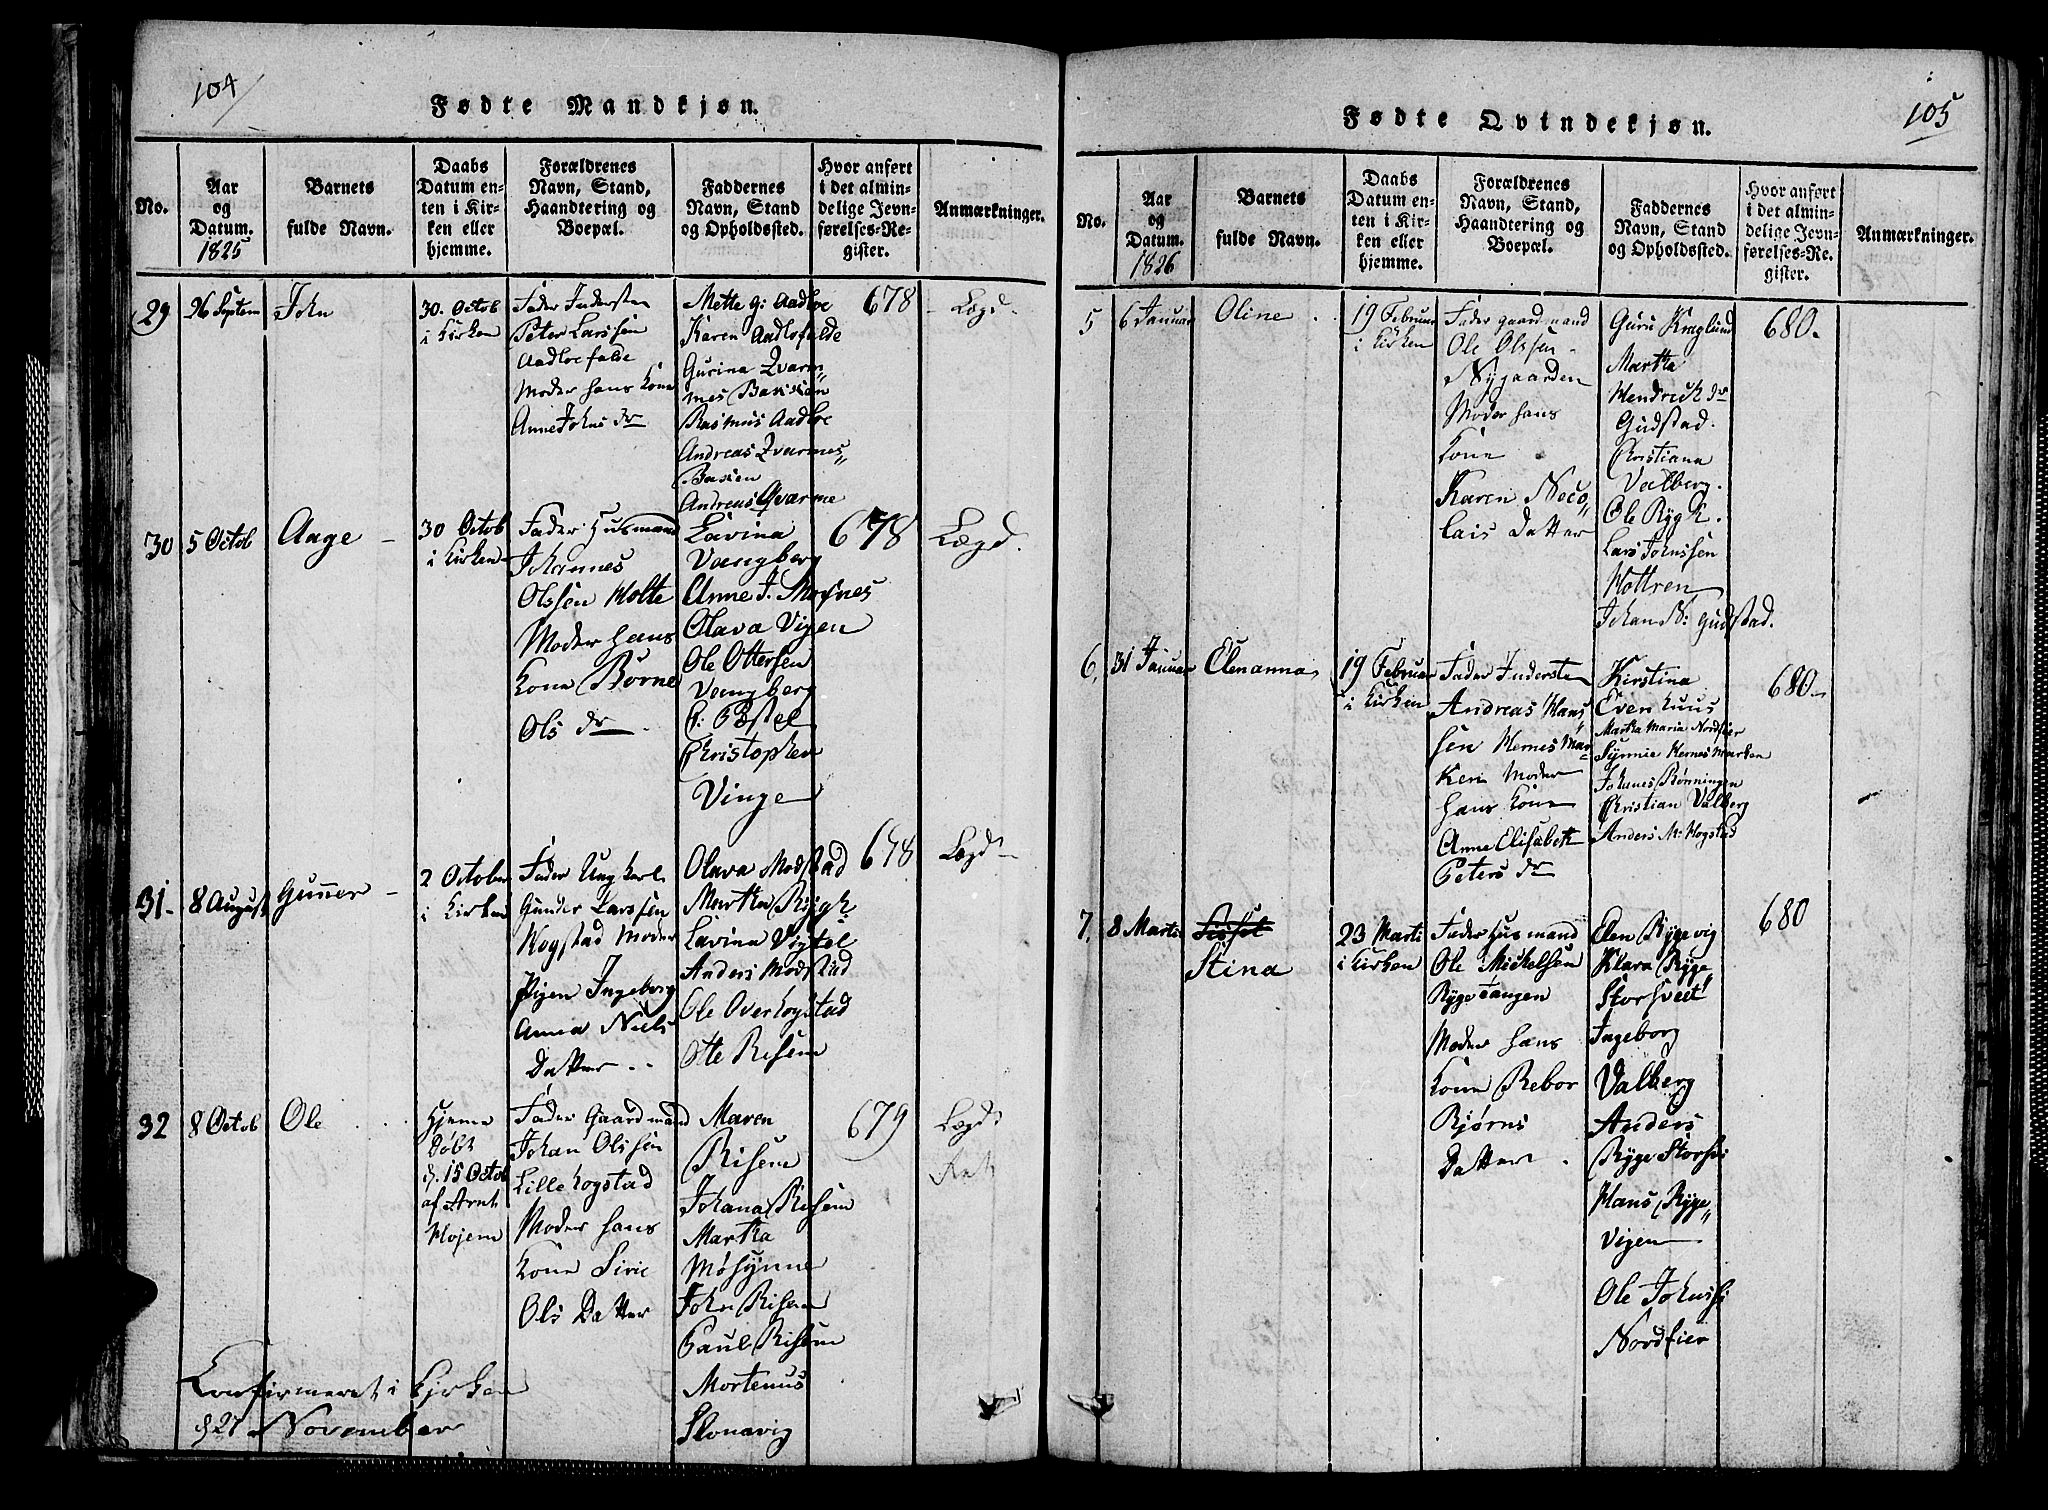 104
Fødte Mandkjøn.
No.
Aar
og
Datum.
1825
Barnets
fulde Navn.
Daabs
Datum en-
ten i Kir-
ken eller
hjemme.
Forældrenes
Navn, Stand,
Haandtering og
Boepæl.
Faddernes
Navn, Stand
og Opholdssted.
Hvor anført
i det almin-
delige Jevn-
førelses-Re-
gister.
Anmærkninger.
29
26 Septem
John
30. Octob
i Kirken
Fader Indersten
Peter Larssen
Aadloefalde
Moder hans Kone
Anne Johns dr
Mette G: Aadloe
Karen Aadlofalde
Gurina Qvarm„
nes Bakken
Rasmus Aadloe
Andreas Qvarmes„
Bakken
Andreas Qvarme
678
Lægd.
30
5 Octob
Aage
30 Octob
i Kirken
Fader Husmand
Johannes
Olssen Holte
Moder hans
Kone Børne
Ols dr
Lavina
Vangberg
Anne J. Mosnes
Olava Vigen
Ole Ottersen
Vangberg
P: Pæstel
Christopher
Vinge
678
Lægd.
31
8 August
Gunner
2 October
i Kirken
Fader Ung karl
Gunder Larssen
Hogstad Moder
Pigen Ingeborg
Anna Niels
Datter
Olava Modstad
Martha Rygh
Lavina Vigtel
Anders Modstad
Ole Overhogstad
Otte Risem
678
Lægd
32
8 Octob
Ole
Hjeme
Døbt
d. 15 Octob
af Arnt
Hojem
Fader Gaardmand
Johan Olssen
Lille hogstad
Moder hans
Kone Siric
Ols Datter
Maren
Risem
Johana Risem
Martha
Møsynne
John Risem
Paul Risem
Mortenus
Slonavig
679
Lægd
Confirmeret i Kjrken
d 27 November
105
Fødte Qvindekjøn.
No.
Aar
og
Datum.
1826
Barnets
fulde Navn.
Daabs
Datum en-
ten i Kir-
ken eller
hjemme.
Forældrenes
Navn, Stand,
Haandtering og
Boepæl.
Faddernes
Navn, Stand
og Opholdssted.
Hvor anført
i det almin-
delige Jevn-
førelses-Re-
gister.
Anmærkninger.
5
6 Januar
Oline
19 Februar
i Kirken
Fader gaardmand
Ole Olssen
Nygaarden
Moder hans
Kone
Karen Neco„
lais Datter
Guru Kraglund
Martha
Hendrick dr
Gudstad.
Christiana
Valberg.
Ole Rygh.
Lars Johnssen
Hottren
Johan N: Gudstad.
680
6.
31 Januar
Elenanna
19 Februar
i Kirken
Fader Indersten
Andreas Hans„
sen Hernes Mar
ken Moder
hans Kone
Anne Elisabeth
Peters dr
Kirstina
Even huus
Martha Maria Nordfier
Synnie Hernes Marken
Johnes Rønningen
Christian Valberg
Anders M: Hogstad
680
7.
8 Marti
Sissel
Stina
23 Marti
i Kirken
Fader Husmand
Ole Mickelsen
Ryge Tangen
Moder hans
Kone Rebor
Bjørns
Datter
Elen Rygevig
Klara Ryge
Storsveet
Ingeborg
Valberg
Anders
Ryge Storsvi
Hans Ryge„
Vigen
Ole Johnssi
Nordfier
680